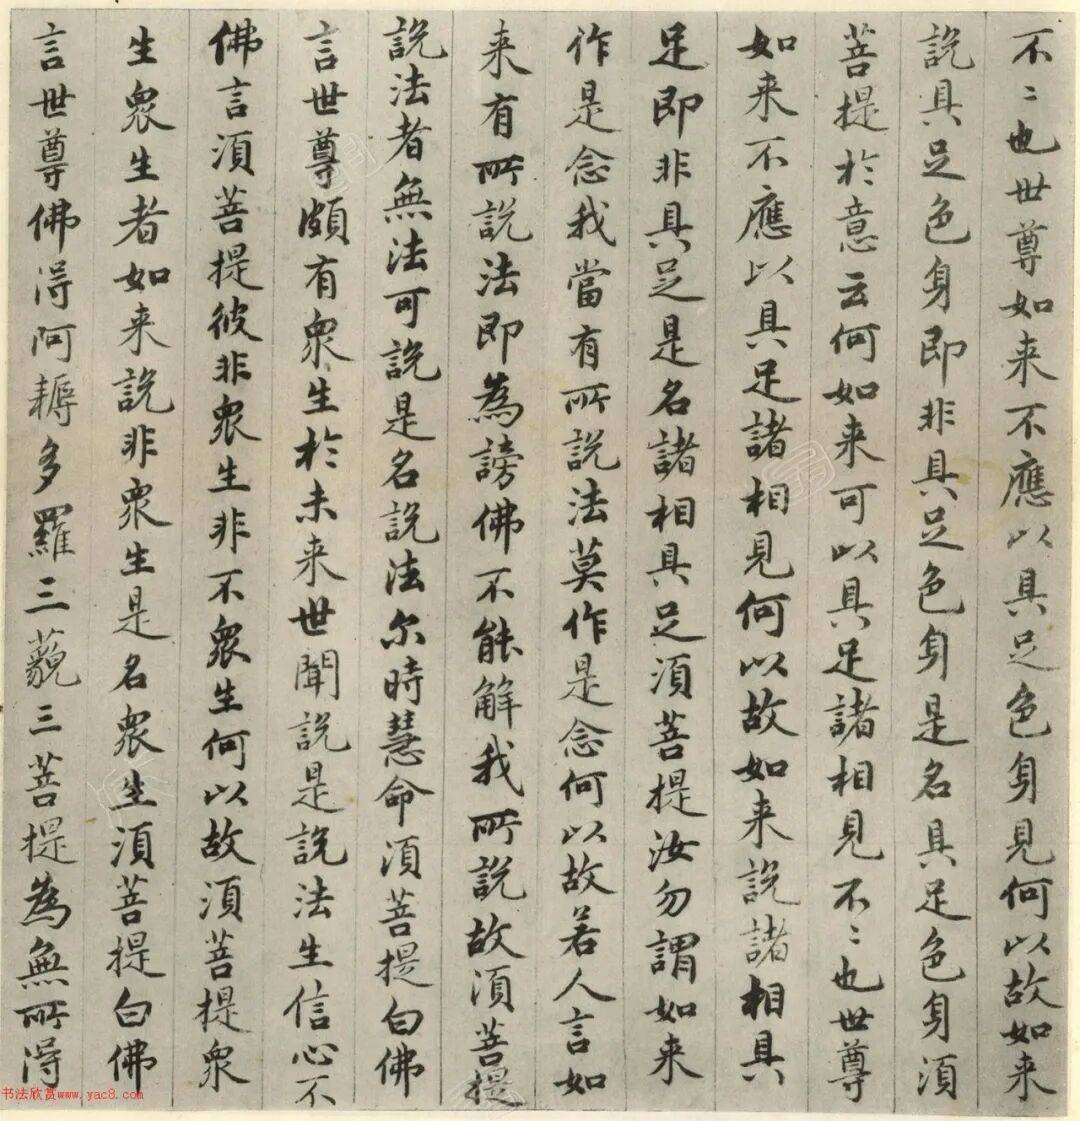 不〻也世尊如来不應以具足色身見何以故如来
說具足色身即非具足色身是名具足色身須
菩提於意云何如来可以具足諸相見不〻也世尊
如来不應以具足諸相見何以故如来說諸相具
足即非具足是名諸相具足須菩提汝勿謂如来
作是念我當有所說法莫作是念何以故若人言如
来有所說法即為謗佛不能解我所說故須菩提
說法者無法可說是名說法尔時慧命須菩提白佛
言世尊頗有衆生於未来世聞說是說法生信心不
佛言須菩提彼非衆生非不衆生何以故須菩提衆
生衆生者如来說非衆生是名衆生須菩提白佛
言世尊佛得阿耨多羅三藐三菩提為無所得
书法欣赏www.yac8.com